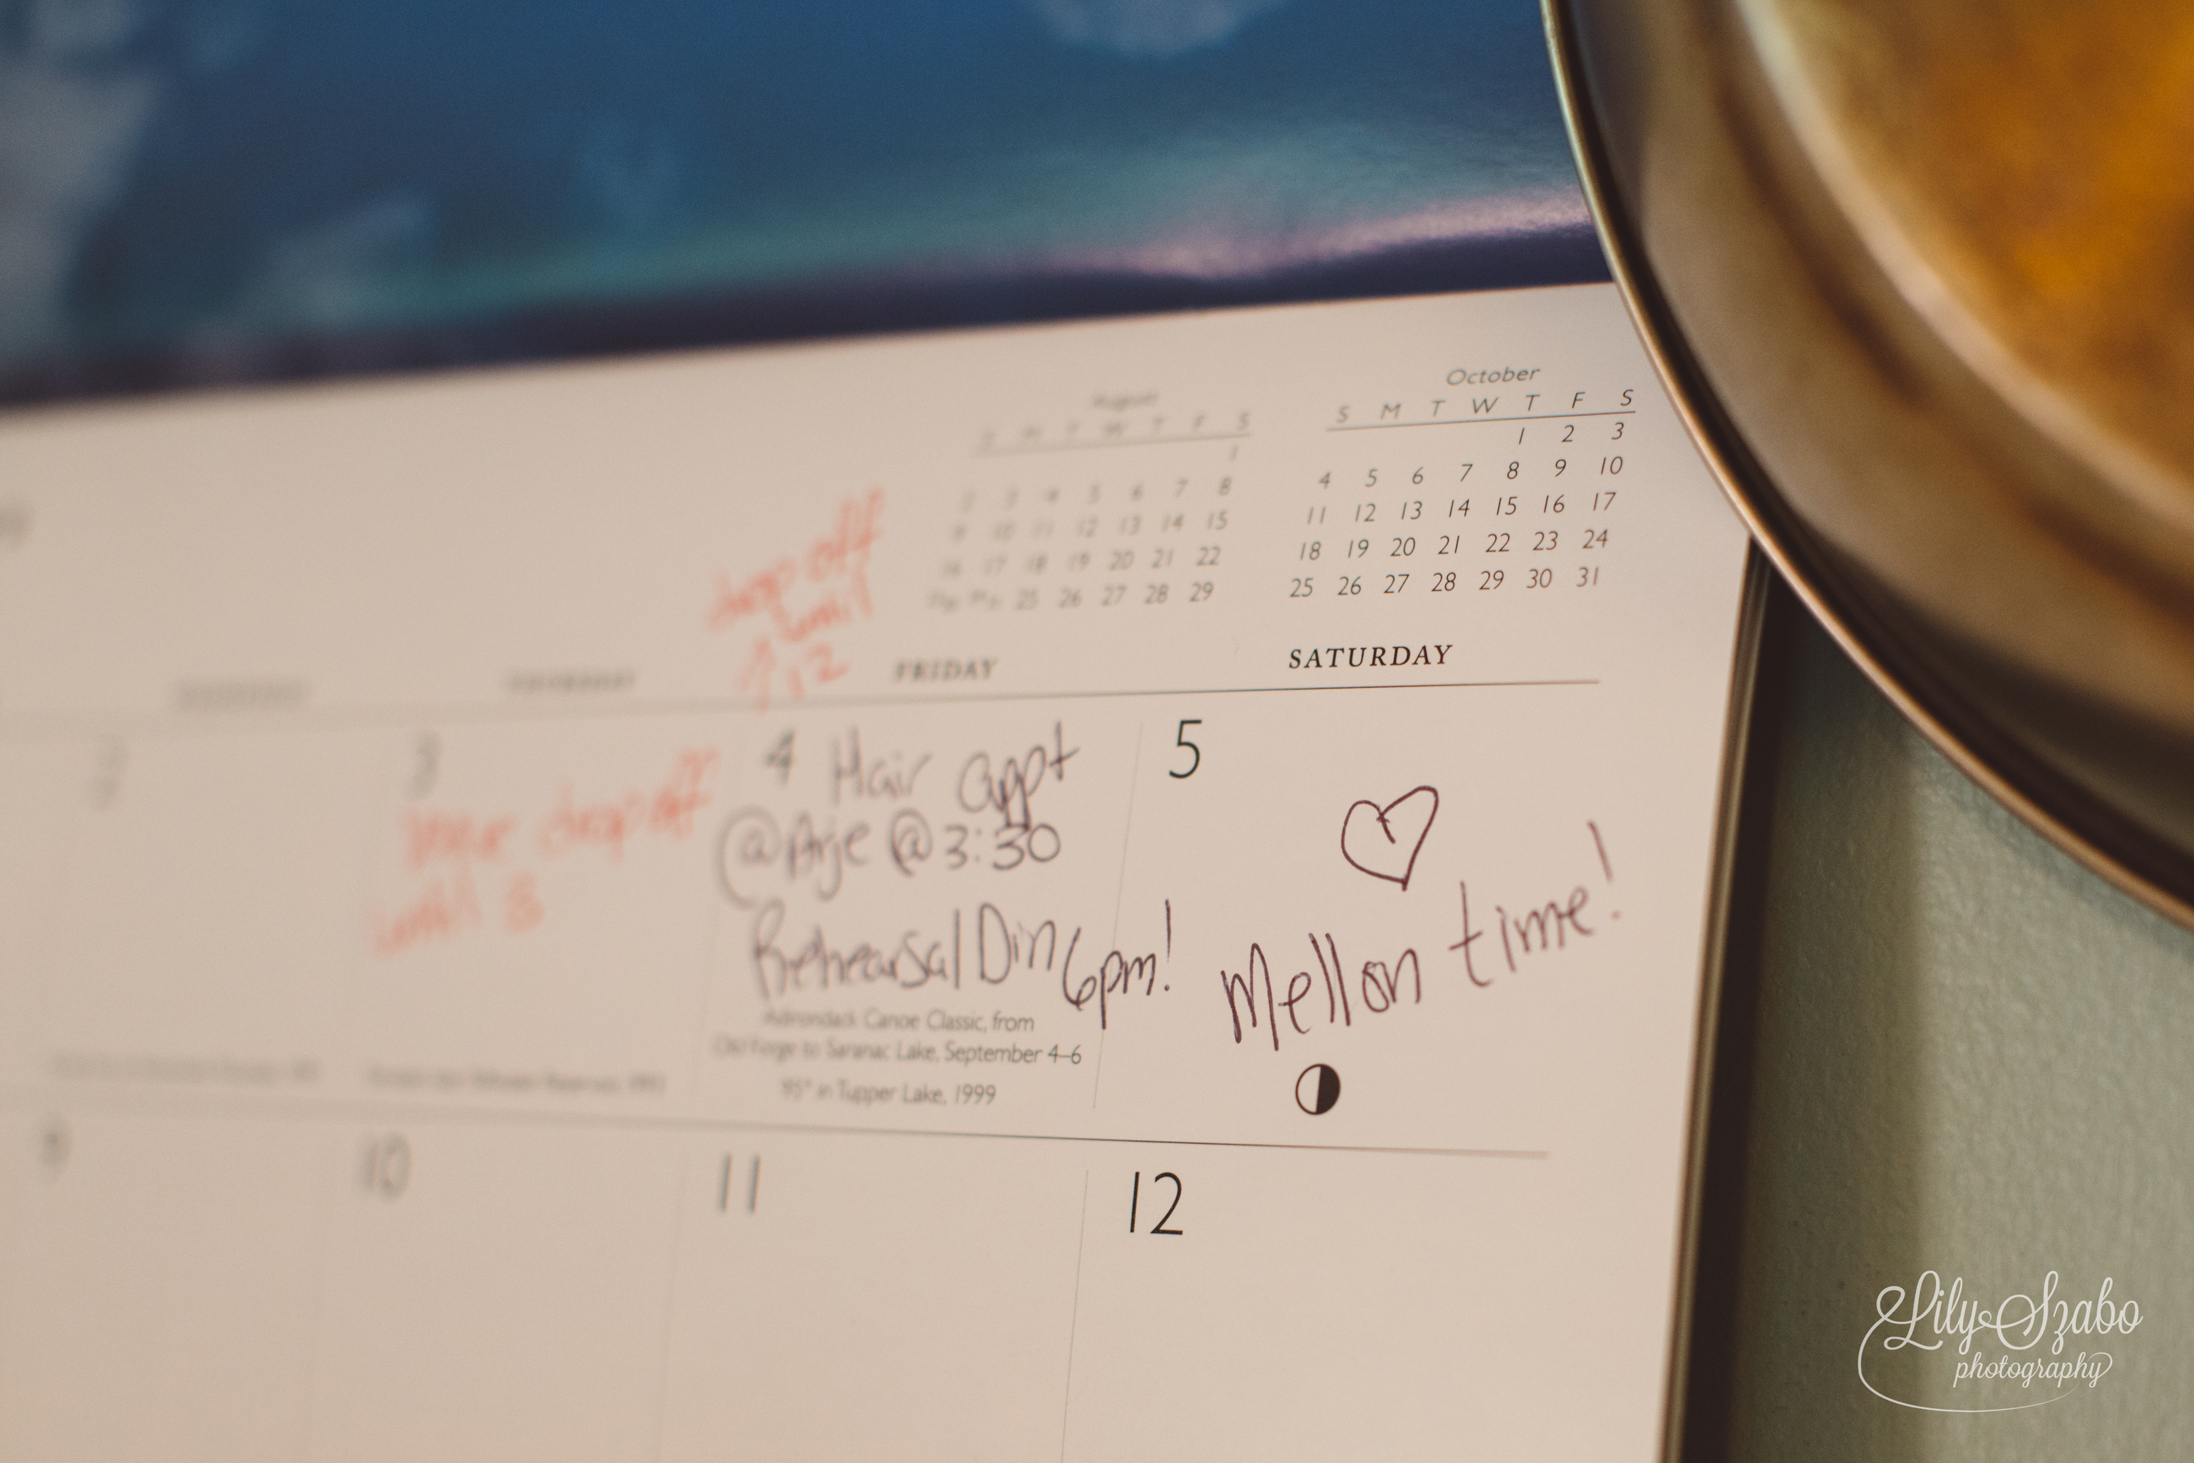 August
S M T W T F S
1
2 3 4 5 6 7 8
9 10 11 12 13 14 15
16 17 18 19 20 21 22
25 26 27 28 29
October
S M T W T F S
1 2 3
4 5 6 7 8 9 10
11 12 13 14 15 16 17
18 19 20 21 22 23 24
25 26 27 28 29 30 31
drop off
until
12
THURSDAY FRIDAY SATURDAY
2
3
drop off
until 3
4 Hair appt
@Arje @ 3:30
Rehearsal Din 6pm!
Adirondack Canoe Classic, from
Old Forge to Saranac Lake, September 4–6
95° in Tupper Lake, 1999
5
Mellon time!
9 10 11 12
Lily Szabo
photography